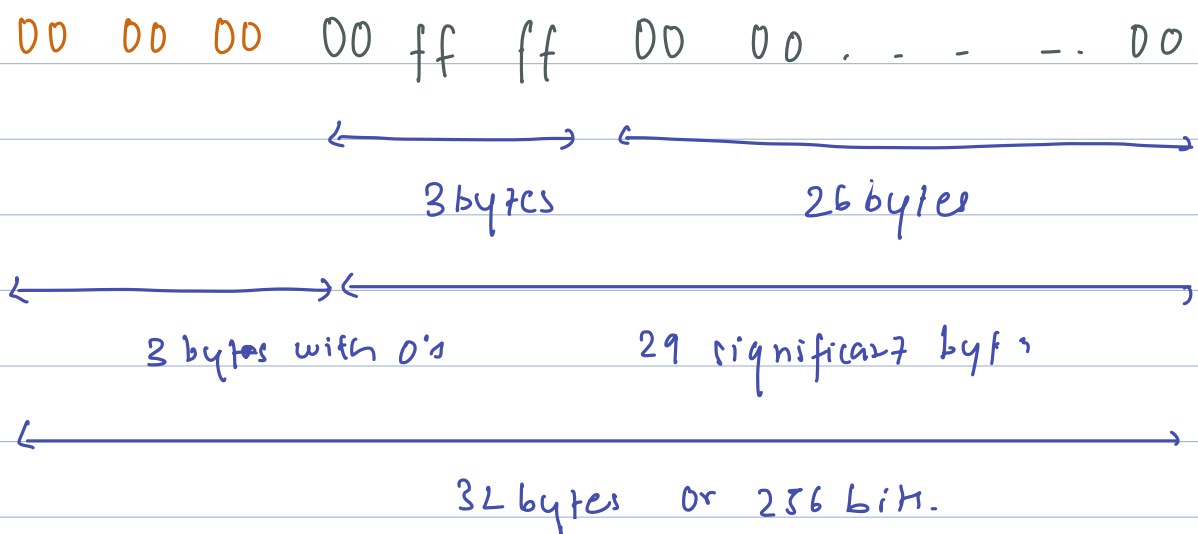 00 00 00 00 ff ff 00 00 . - - - . 00
3 bytes 26 bytes
3 bytes with 0's 29 significant bytes
32 bytes or 256 bits.